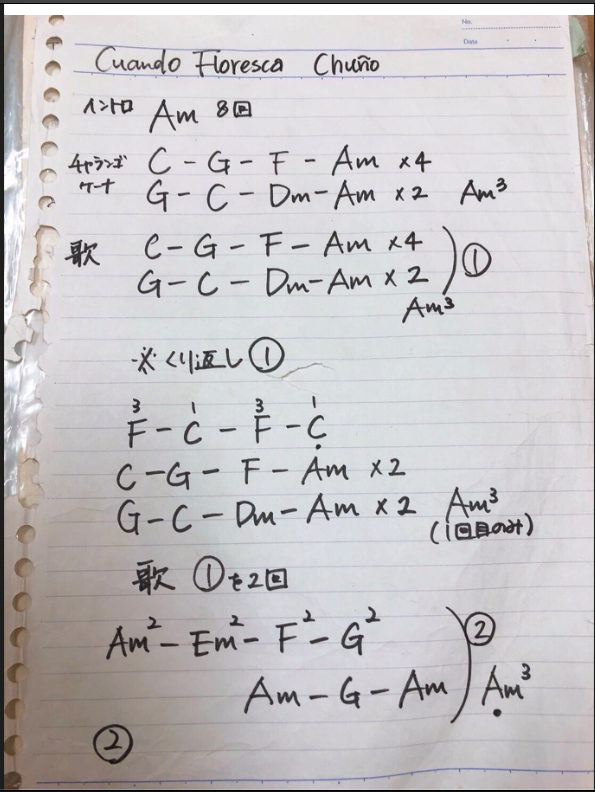 No.
Date
Cuando Floresca Chuño
イントロ Am 8回
チャランゴ C - G - F - Am ×4
ケーナ G - C - Dm - Am ×2 Am³
歌 C - G - F - Am ×4
G - C - Dm - Am ×2 ①
Am³
※くり返し①
3 1 3 1
F - C - F - C
C - G - F - Am ×2
G - C - Dm - Am ×2 Am³
(1回目のみ)
歌 ①を2回
Am² - Em² - F² - G² ②
Am - G - Am Am³
②